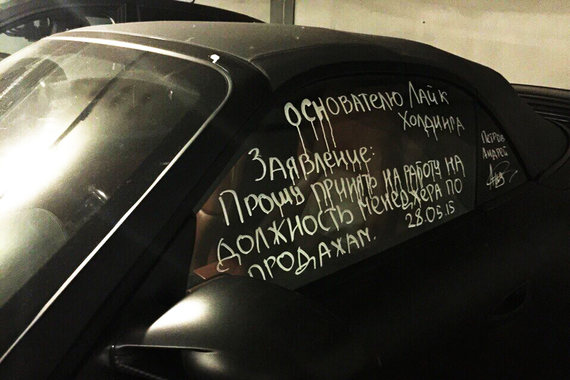 ОСНОВАТЕЛЮ ЛАЙК
ХОЛДИНГА
ЗАЯВЛЕНИЕ:
ПРОШУ ПРИНЯТЬ НА РАБОТУ НА
ДОЛЖНОСТЬ МЕНЕДЖЕРА ПО
ПРОДАЖАМ.
28.05.15
ПЕТРОВ
АНДРЕЙ